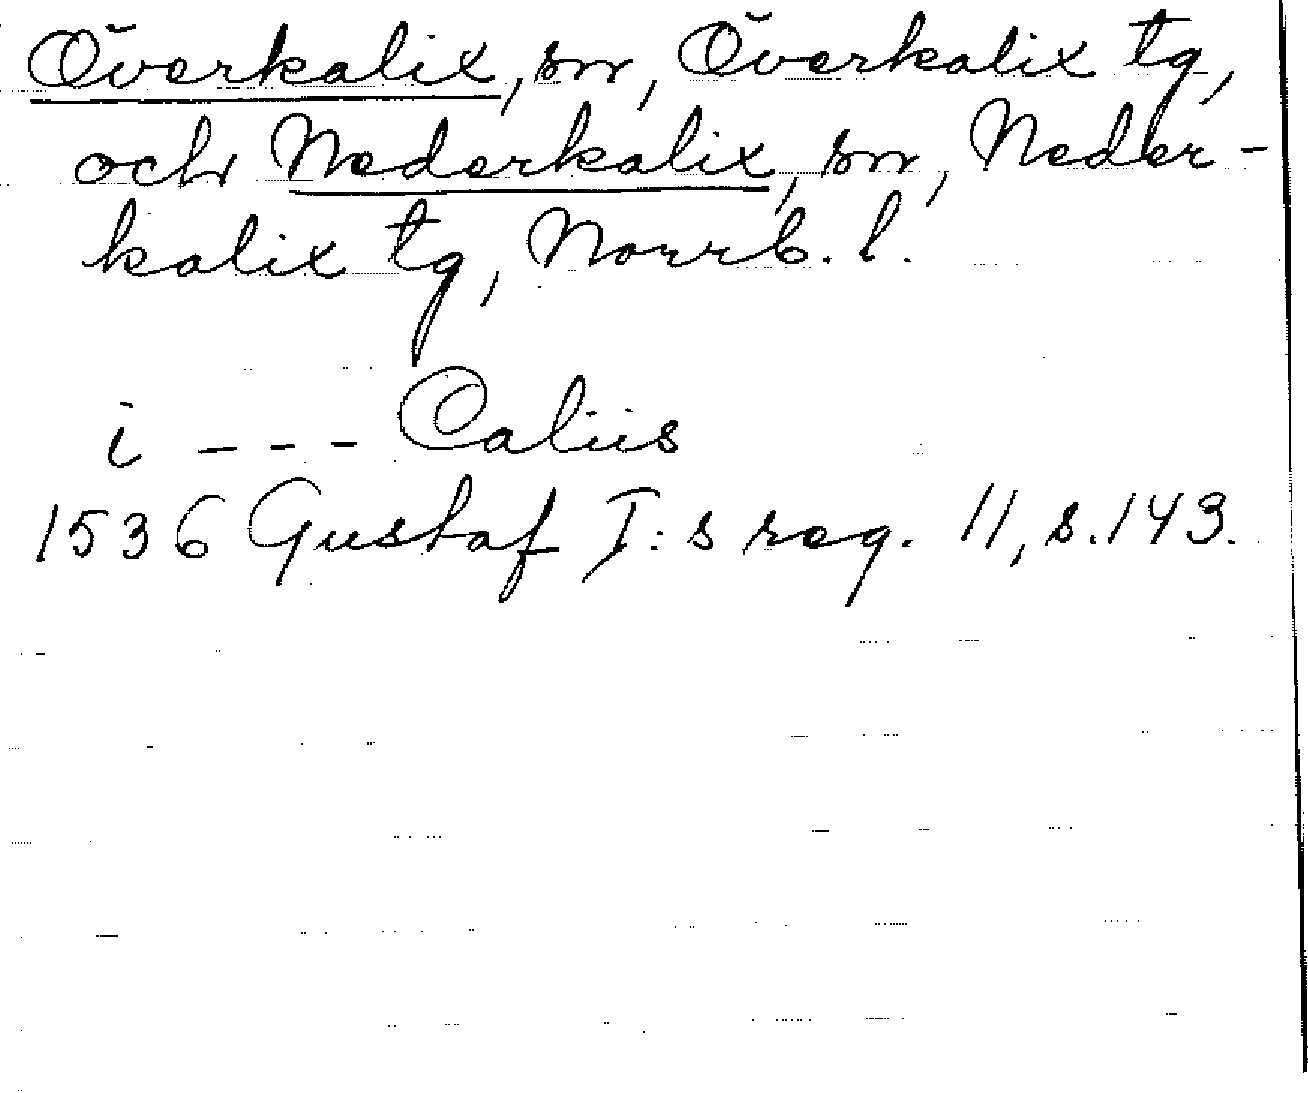 Överkalix, sn, Överkalix tg,
och Nederkalix, sn, Neder-
kalix tg, Norrb. l.
i --- Caliis
1536 Gustaf I:s reg. 11, s. 143.